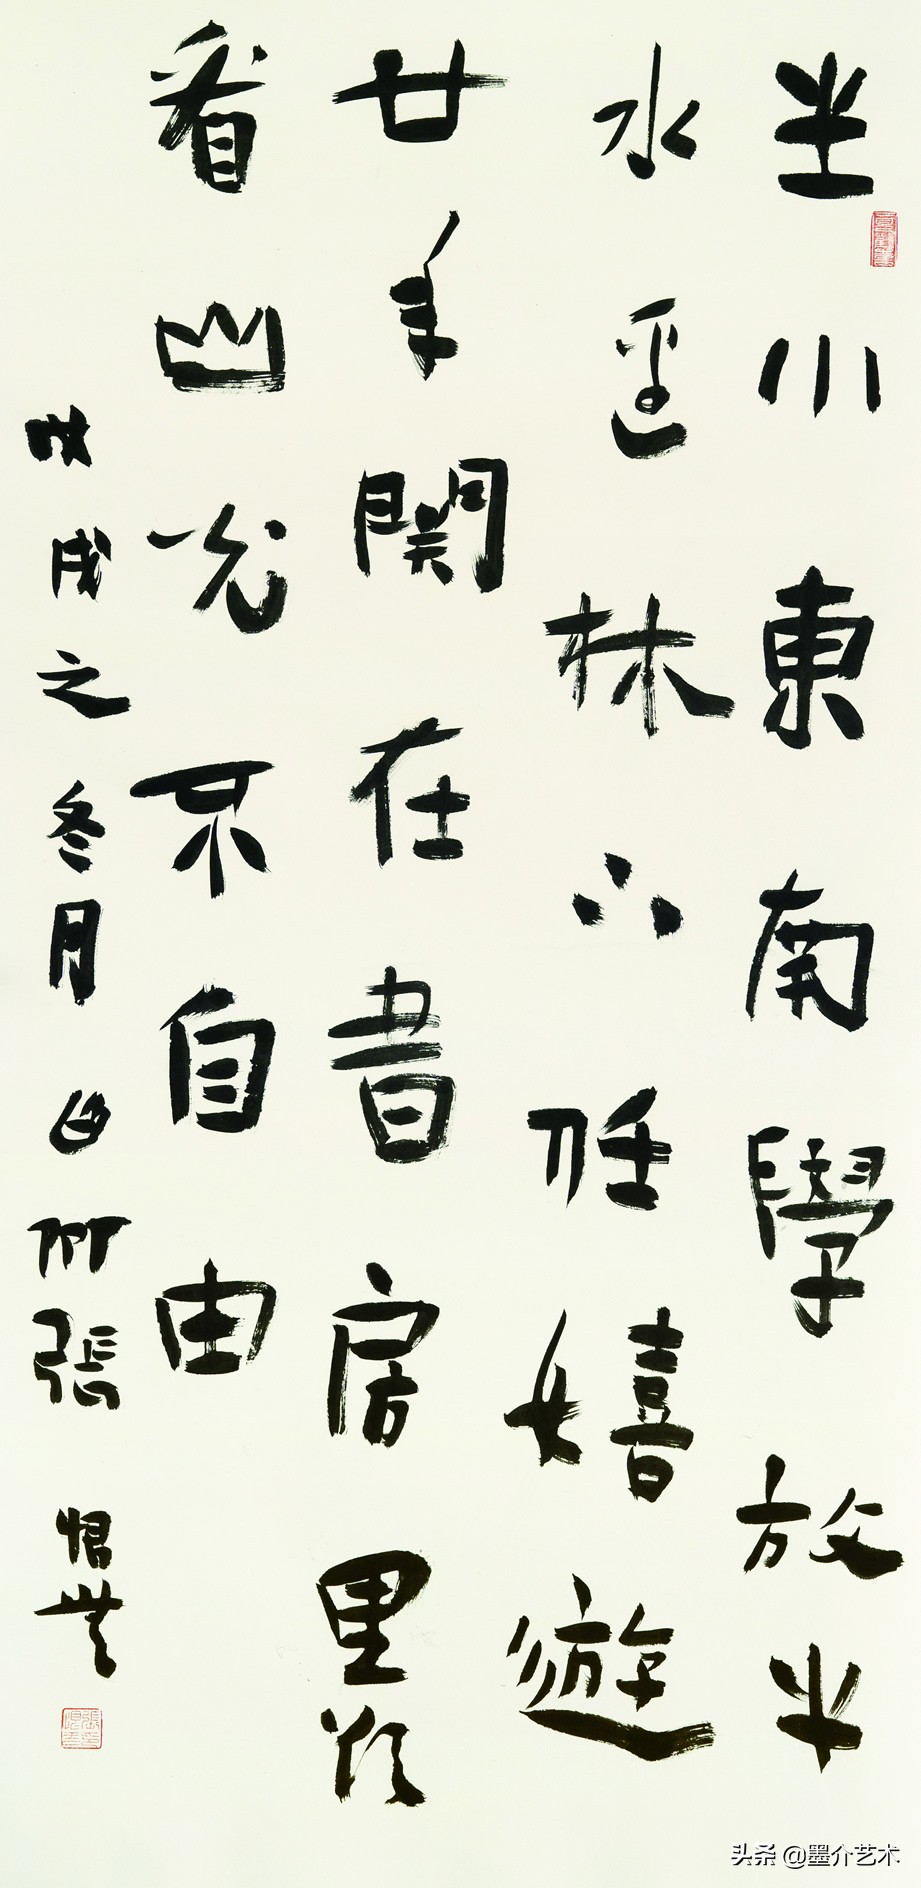 生小東南學放牛
水邊林下任嬉遊
廿年關在書房里欲
看山光不自由
戊戌之冬月 竹張恨無
头条 @墨介艺术